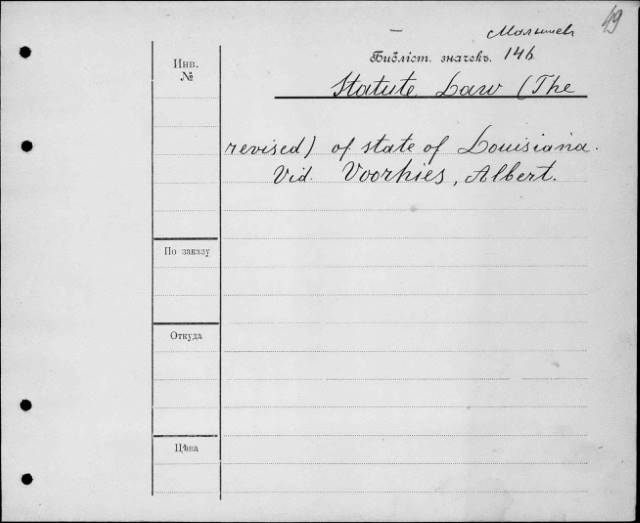 49
Малышевъ
Инв.
№
Библіот. значекъ. 146
Statute Law (The
revised) of state of Louisiana.
Vid. Voorhies, Albert.
По заказу
Откуда
Цѣна